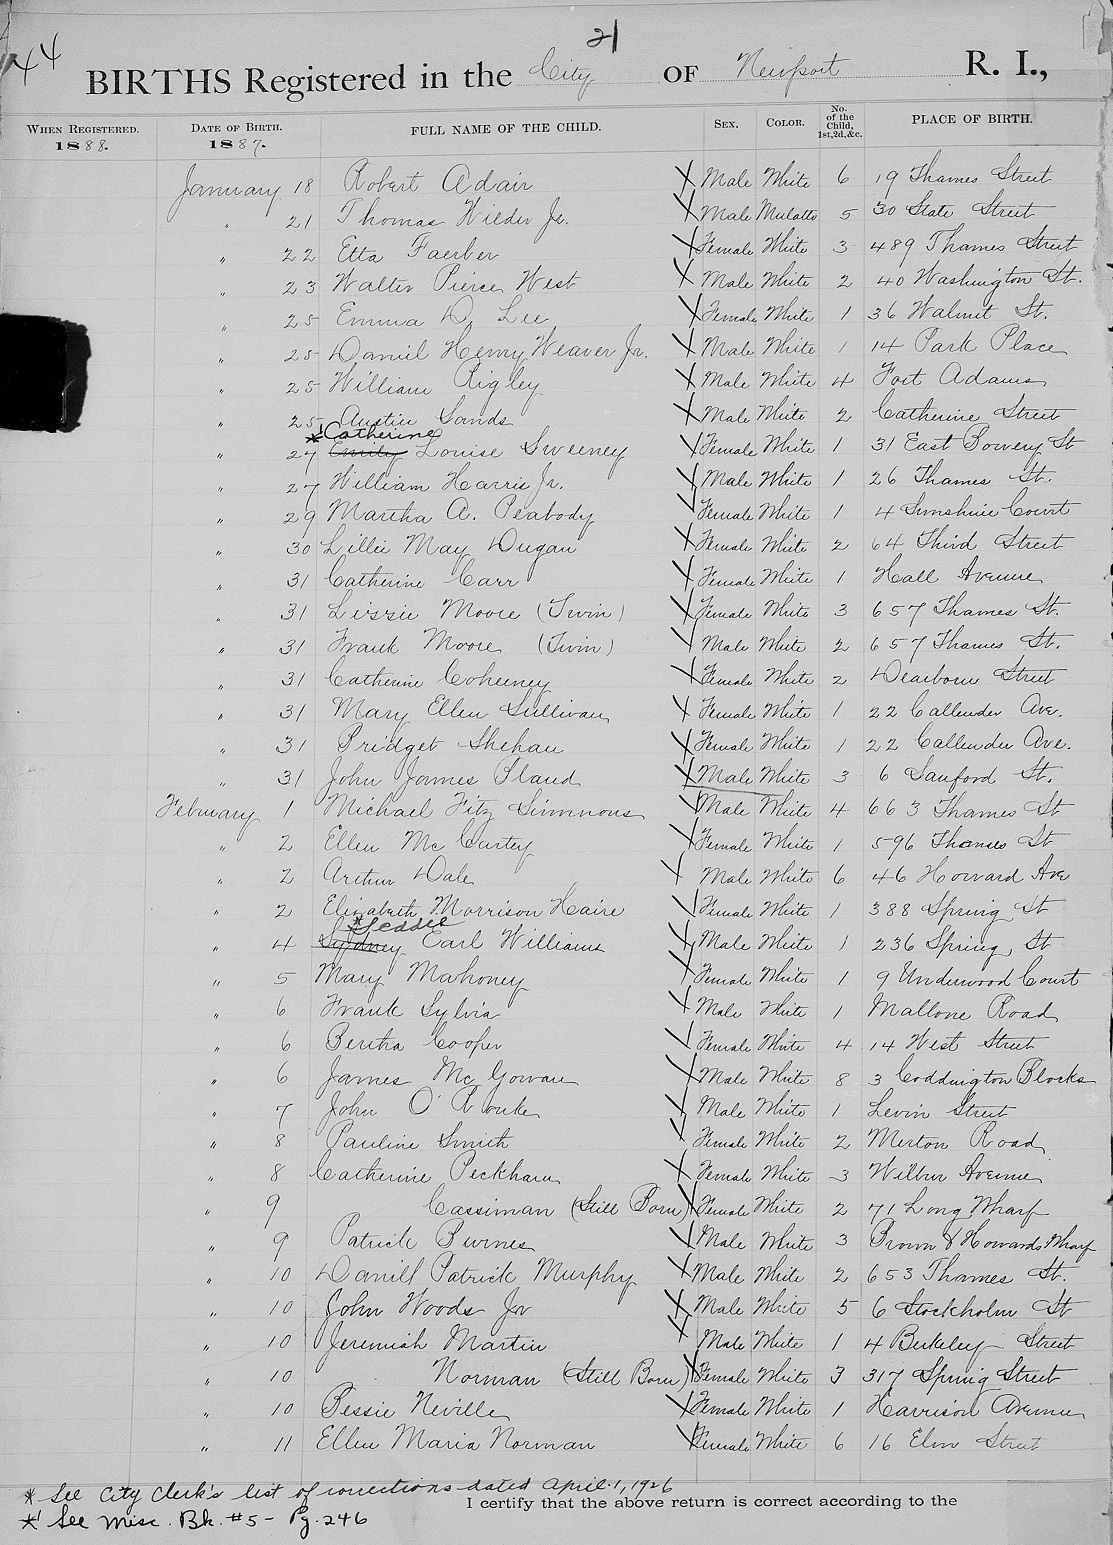 44
21
BIRTHS Registered in the City OF Newport R. I.,
WHEN REGISTERED. 1888. DATE OF BIRTH. 1887. FULL NAME OF THE CHILD. SEX. COLOR. No. of the Child, 1st, 2d, &c. PLACE OF BIRTH.
January 18 Robert Adair X Male White 6 19 Thames Street
" 21 Thomas Wilder Jr. X Male Mulatto 5 30 State Street
" 22 Etta Faerber X Female White 3 489 Thames Street
" 23 Walter Pierce West X Male White 2 40 Washington St.
" 25 Emma D. Lee X Female White 1 36 Walnut St.
" 25 Daniel Henry Weaver Jr. X Male White 1 14 Park Place
" 25 William Rigley X Male White 4 Fort Adams
" 25 Austin Sands X Male White 2 Catherine Street
*' Catherine
" 27 Emily Louise Sweeney X Female White 1 31 East Bowery St
" 27 William Harris Jr. X Male White 1 26 Thames St.
" 29 Martha A. Peabody X Female White 1 4 Sunshine Court
" 30 Lillie May Dugan X Female White 2 64 Third Street
" 31 Catherine Carr X Female White 1 Hall Avenue
" 31 Lizzie Moore (Twin) X Female White 3 657 Thames St.
" 31 Frank Moore (Twin) X Male White 2 657 Thames St.
" 31 Catherine Coheeney X Female White 2 Dearborn Street
" 31 Mary Ellen Sullivan X Female White 1 22 Callender Ave.
" 31 Bridget Shehan X Female White 1 22 Callender Ave.
" 31 John James Pland X Male White 3 6 Sanford St.
February 1 Michael Fitz Simmons X Male White 4 663 Thames St
" 2 Ellen Mc Cartey X Female White 1 596 Thames St
" 2 Arthur Dale X Male White 6 46 Howard Ave
" 2 Elizabeth Morrison Haire X Female White 1 388 Spring St
* Seddie
" 4 Sydney Earl Williams X Male White 1 236 Spring St
" 5 Mary Mahoney X Female White 1 9 Underwood Court
" 6 Frank Sylvia X Male White 1 Mallone Road
" 6 Bertha Cooper X Female White 4 14 West Street
" 6 James Mc Gowan X Male White 8 3 Coddington Blocks
" 7 John O'Rourke X Male White 1 Levin Street
" 8 Pauline Smith X Female White 2 Merton Road
" 8 Catherine Peckham X Female White 3 Wilbur Avenue
" 9 Cassiman (Still Born) X Female White 2 71 Long Wharf
" 9 Patrick Burnes X Male White 3 Brown & Howards Wharf
" 10 Daniel Patrick Murphy X Male White 2 653 Thames St.
" 10 John Woods Jr X Male White 5 6 Stockholm St
" 10 Jeremiah Martin X Male White 1 4 Berkeley Street
" 10 Norman (Still Born) X Female White 3 317 Spring Street
" 10 Bessie Neville X Female White 1 Harrison Avenue
" 11 Ellen Maria Norman X Female White 6 16 Elm Street
* See City Clerk's list of corrections dated April 1, 1926
I certify that the above return is correct according to the
*' See Misc. Bk. #5 - Pg. 246